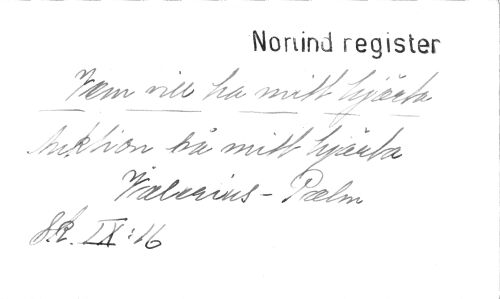 Norlind register
Vem vill ha mitt hjärta
Auktion på mitt hjärta
Valerius - Palm
Sk. IX:16